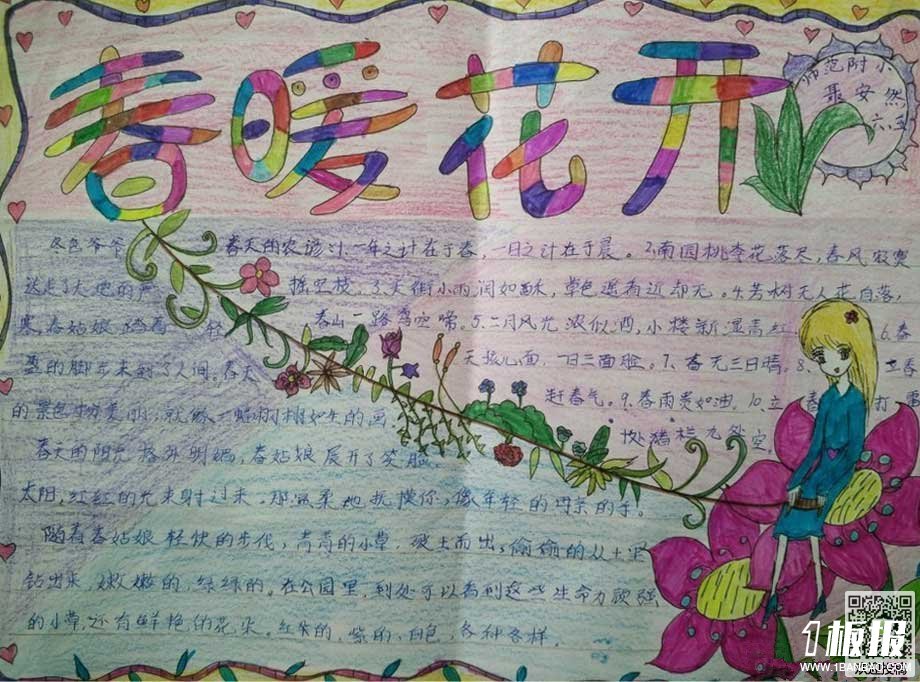 春暖花开
师范附小
聂安然
六.三
冬爷爷
送走了大地的严
寒,春姑娘踏着轻
盈的脚步来到了人间。春天
的景色物美丽,就像一幅栩栩如生的画。
春天的阳光格外明媚,春姑娘展开了笑脸
太阳,红红的光束射过来,那温柔地抚摸你,像年轻的母亲的手。
随着春姑娘轻快的步伐,青青的小草,破土而出,偷偷的从土里
钻出来,嫩嫩的,绿绿的。在公园里,到处可以看到这些生命力顽强
的小草,还有鲜艳的花朵。红色的,紫的,白色,各种各样。
春天的农谚:1.一年之计在于春,一日之计在于晨。2.南园桃李花落尽,春风寂寞
摇空枝。3.天街小雨润如酥,草色遥看近却无。4.芳树无人花自落,
春山一路鸟空啼。5.二月风光浓似酒,小楼新湿青红 6.春
天孩儿面,一日三面脸。7.春无三日晴。8. 立春
赶春气。9.春雨贵如油。10.立春打雷
十处猪栏九处空。
1板报
WWW.1BANBAO.COM
欢迎投稿